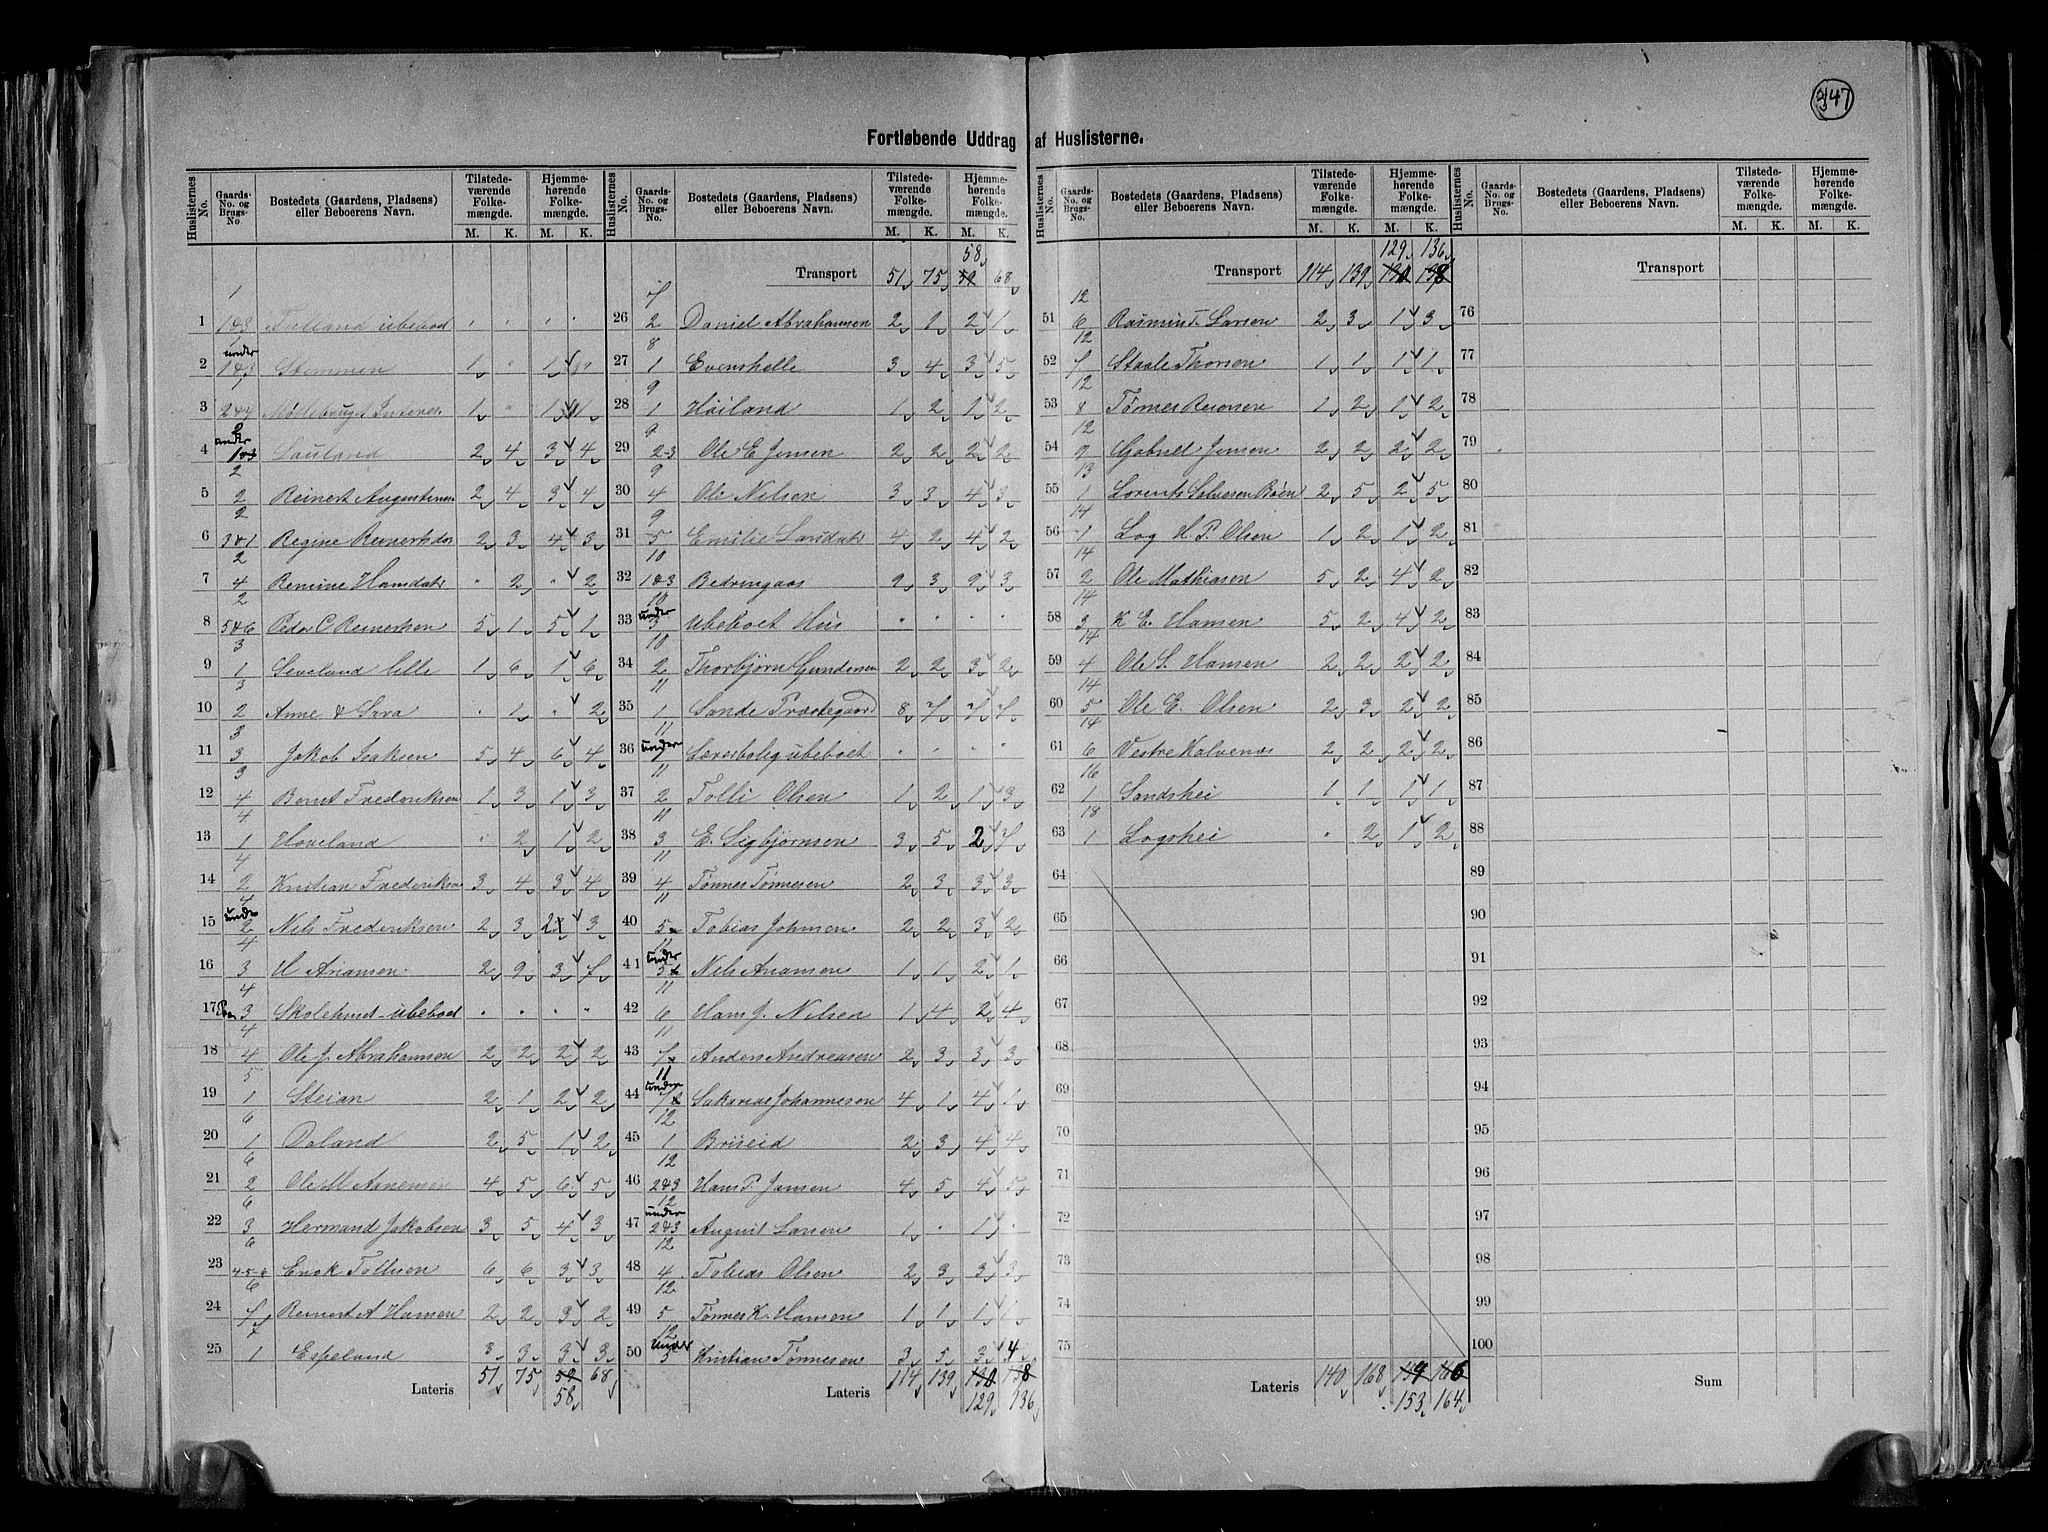 347
Fortløbende Uddrag af Huslisterne.
Huslisternes No. Gaards-No. og Brugs-No. Bostedets (Gaardens, Pladsens) eller Beboerens Navn. Tilstedeværende Folkemængde. M. K. Hjemmehørende Folkemængde. M. K.
1 1 1&3 ubeboet
2 1 under 1&3 Stemmen 1 " 1
3 1 2&4 1 " 1
4 2 under 1&3 Lauland 2 4 3 4
5 2 2 Reinert Augustinus 2 4 3 4
6 2 3&1 Regine Reinertsdar 2 3 4 3
7 2 4 Remine Hamdatr " 2 " 2
8 2 5&6 Peder C Reinertsen 5 1 5 1
9 3 1 Seveland lille 1 6 1 6
10 3 2 Anne & " 1 " 2
11 3 3 Jakob Isaksen 5 4 6 4
12 3 4 Bernt Frederiksen 1 3 1 3
13 4 1 Hoveland " 2 1 2
14 4 2 Kristian Frederiksen 3 4 3 4
15 4 under 2 Nils Frederiksen 2 3 2 3
16 4 3 Ariansen 2 9 3 7
17 4 3 Skolehuset ubeboet " " " "
18 4 4 Ole J. Abrahamsen 2 2 2 2
19 5 1 Steian 2 1 2 2
20 6 1 Doland 2 5 1 2
21 6 2 Ole M Aanensen 4 5 6 5
22 6 3 Hermand Jakobsen 3 5 4 3
23 6 4-5-6 Enok Tollisen 6 6 3 3
24 6 7 Reinert A Hansen 2 2 3 2
25 7 1 Espeland 3 3 3 3
Lateris 51 75 59 68
58
Huslisternes No. Gaards-No. og Brugs-No. Bostedets (Gaardens, Pladsens) eller Beboerens Navn. Tilstedeværende Folkemængde. M. K. Hjemmehørende Folkemængde. M. K.
58
Transport 51 75 59 68
26 7 2 Daniel Abrahamsen 2 1 2 1
27 8 1 Evenshelle 3 4 3 5
28 9 1 Höiland 1 2 1 2
29 9 2-3 Ole E Jensen 2 2 2 2
30 9 4 Ole Nilsen 3 3 4 3
31 9 5 Emilie Larsdatr 4 2 4 2
32 10 1&3 Bedringaas 9 3 9 3
33 10 under 3 Ubeboet Hus " " " "
34 10 2 Thorbjörn Gundersen 2 2 3 2
35 11 1 Sande Præstegaard 8 7 7 7
36 11 under 1 Lærerbolig ubeboet " " " "
37 11 2 Tolli Olsen 1 2 1 3
38 11 3 E. Sigbjörnsen 3 5 2 7
39 11 4 Tønnes Tønnesen 2 3 3 3
40 11 5 Tobias Johnsen 2 2 3 2
41 11 under 5 Nils Ariansen 1 1 2 1
42 11 6 Hans J. Nilsen 1 4 2 4
43 11 7 Anders Andreasen 2 3 3 3
44 11 under 7 Sakarias Johannesen 4 1 4 1
45 12 1 Briseid 2 3 4 4
46 12 2&3 Hans P. Jansen 4 5 4 5
47 12 under 2&3 August Larsen 1 " 1 "
48 12 4 Tobias Olsen 2 3 3 3
49 12 5 Tønnes K. Hansen 1 1 1 1
50 12 under 5 Kristian Tönnesen 3 5 3 4
Lateris 114 139 130 138
129 136
Huslisternes No. Gaards-No. og Brugs-No. Bostedets (Gaardens, Pladsens) eller Beboerens Navn. Tilstedeværende Folkemængde. M. K. Hjemmehørende Folkemængde. M. K.
129 136
Transport 114 139 130 138
51 12 6 Rasmus T. Larsen 2 3 1 3
52 12 7 Staale Thorsen 1 1 1 1
53 12 8 Tønnes Reiersen 1 2 1 2
54 12 9 Gabriel Jensen 2 2 2 2
55 13 1 Lorents Salvesen Böen 2 5 2 5
56 14 1 Log H. P. Olsen 1 2 1 2
57 14 2 Ole Mathiasen 5 2 4 2
58 14 3 K E. Hansen 5 2 4 2
59 14 4 Ole S. Hansen 2 2 2 2
60 14 5 Ole E. Olsen 2 3 2 2
61 14 6 Vestre Kalvenes 2 2 2 2
62 16 1 Sandshei 1 1 1 1
63 18 1 Logshei " 2 1 2
64
65
66
67
68
69
70
71
72
73
74
75
Lateris 140 168 154 166
153 164
Huslisternes No. Gaards-No. og Brugs-No. Bostedets (Gaardens, Pladsens) eller Beboerens Navn. Tilstedeværende Folkemængde. M. K. Hjemmehørende Folkemængde. M. K.
Transport
76
77
78
79
80
81
82
83
84
85
86
87
88
89
90
91
92
93
94
95
96
97
98
99
100
Sum